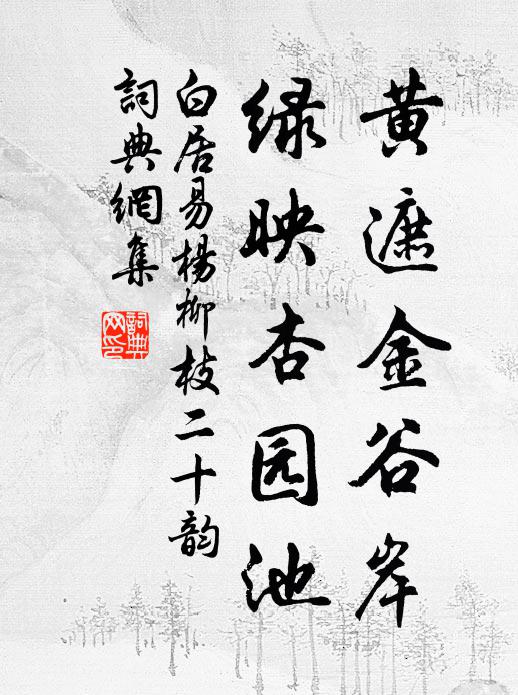 黄遮金谷岸
绿映杏园池
白居易楊柳枝二十韵
詞典網集
詞典
网印